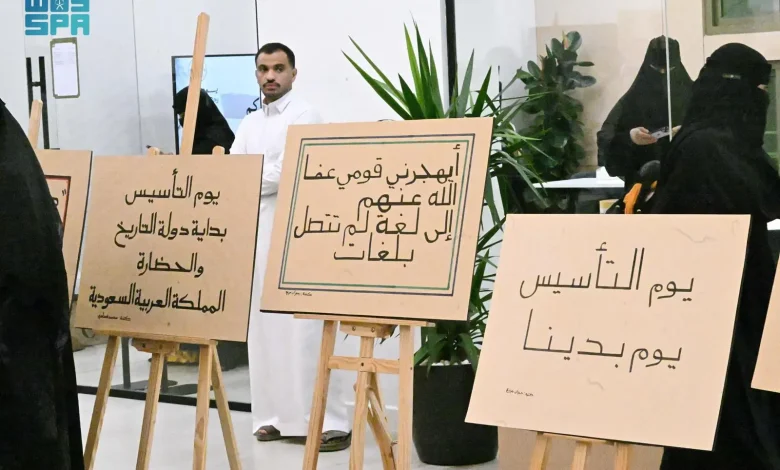 واس
SPA
يوم التأسيس
بداية دولة التاريخ
والحضارة
المملكة العربية السعودية
أيهجرني قومي عفا
الله عنهم
إلى لغة لم تتصل
بلغات
يوم التأسيس
يوم بدينا